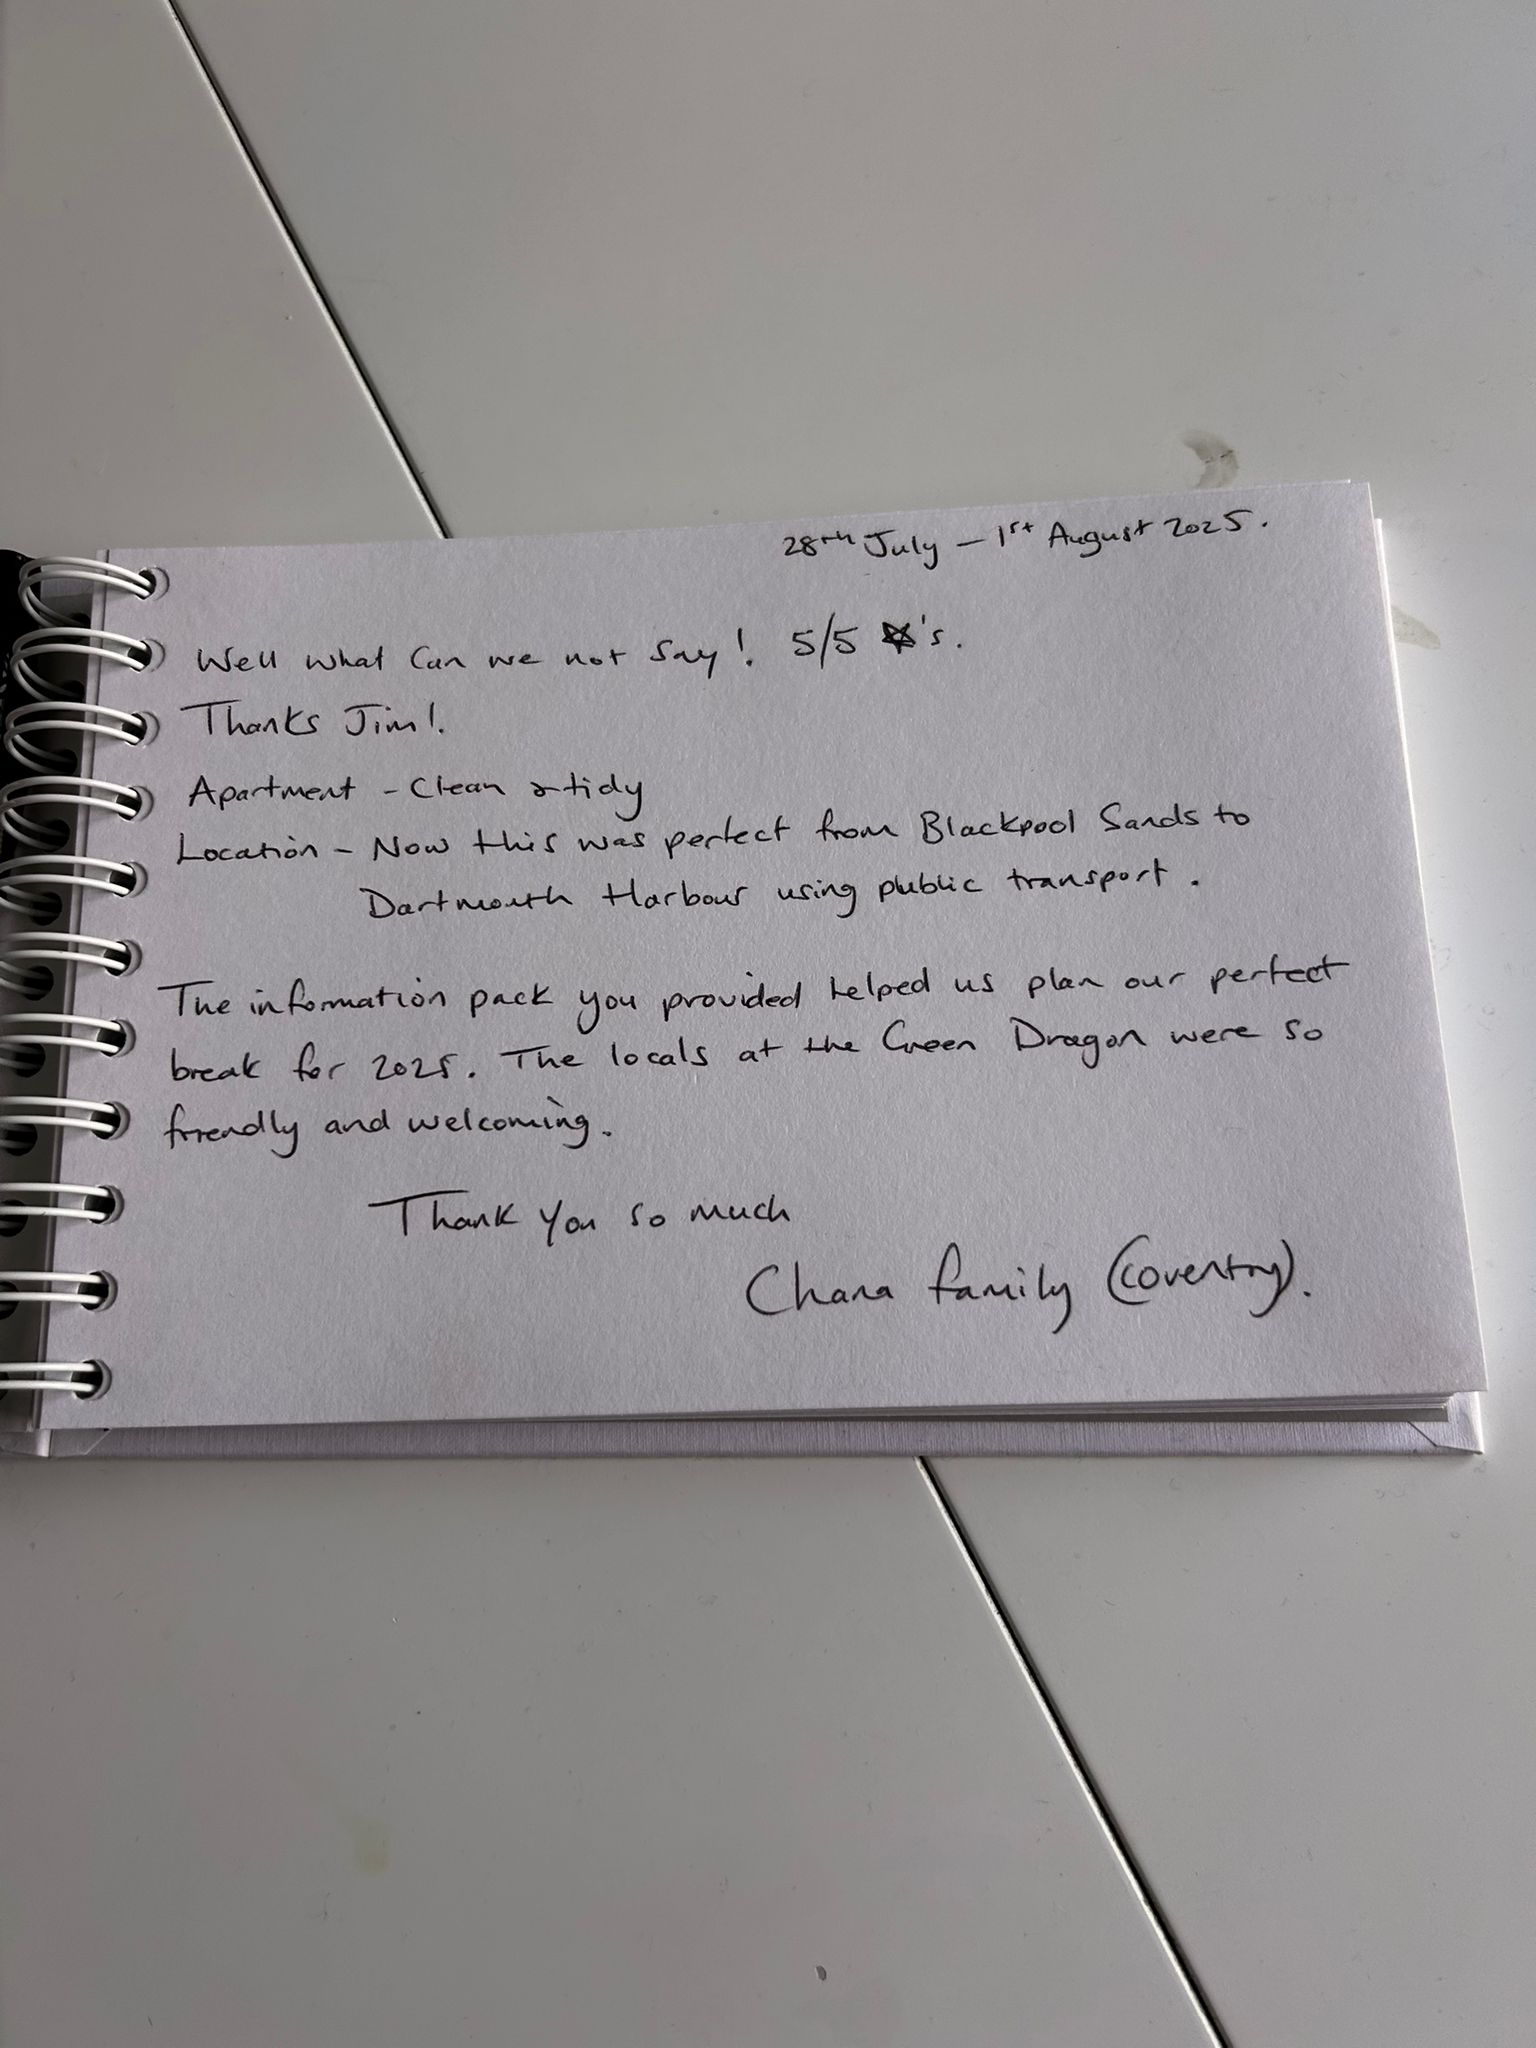 28th July – 1st August 2025.
Well what can we not say! 5/5 ★'s.
Thanks Jim!
Apartment - Clean & tidy
Location - Now this was perfect from Blackpool Sands to
Dartmouth Harbour using public transport.
The information pack you provided helped us plan our perfect
break for 2025. The locals at the Green Dragon were so
friendly and welcoming.
Thank you so much
Chana family (Coventry).